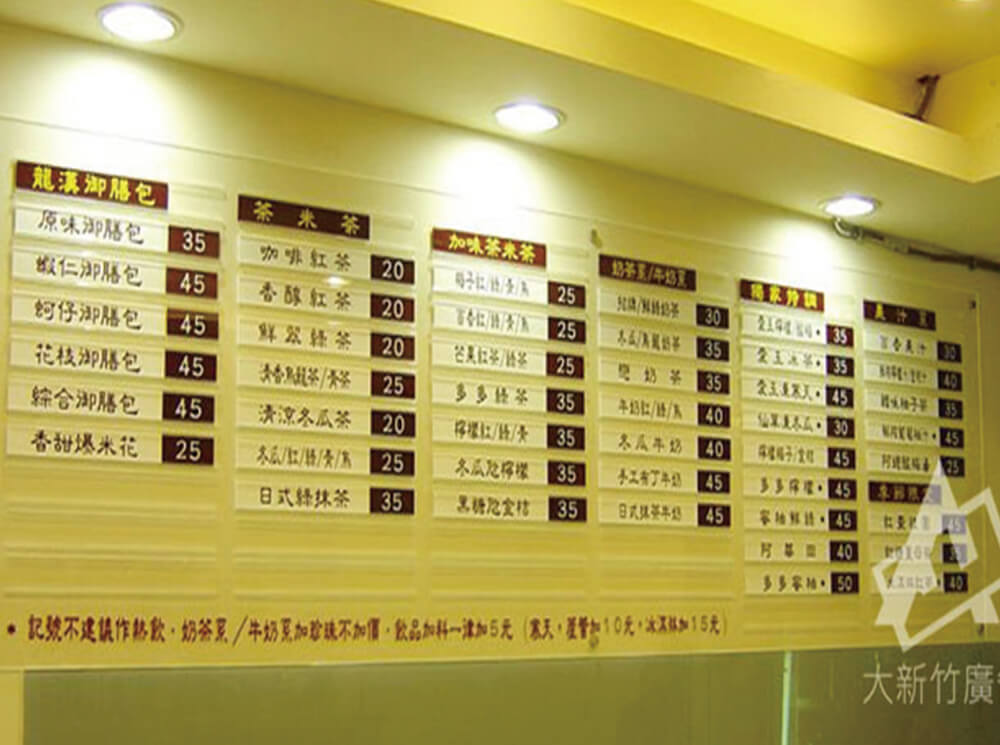 龍漢御膳包
原味御膳包 35
蝦仁御膳包 45
蚵仔御膳包 45
花枝御膳包 45
綜合御膳包 45
香甜爆米花 25
茶米茶
咖啡紅茶 20
香醇紅茶 20
鮮翠綠茶 20
清香烏龍茶/青茶 25
清涼冬瓜茶 20
冬瓜/紅/綠/青/烏 25
日式綠抹茶 35
加味茶米茶
梅子紅/綠/青/烏 25
百香紅/綠/青/烏 25
芒果紅茶/綠茶 25
多多綠茶 35
檸檬紅/綠/青 35
冬瓜佐檸檬 35
黑糖佐金桔 35
奶茶系/牛奶系
招牌/鮮綠奶茶 30
冬瓜/烏龍奶茶 35
戀奶茶 35
牛奶紅/綠/烏 40
冬瓜牛奶 40
手工布丁牛奶 45
日式抹茶牛奶 45
獨家特調
35
愛玉冰茶• 35
愛玉凍寒天• 45
仙草凍冬瓜• 30
檸檬梅子/金桔 45
多多檸檬• 45
蜜柚鮮綠• 45
阿華田 40
多多蜜柚• 50
果汁系
百香果汁 30
40
韓味柚子茶 35
鮮搾葡萄柚汁• 45
25
45
35
冰淇淋紅茶• 40
* 記號不建議作熱飲,奶茶系/牛奶系加珍珠不加價,飲品加料一律加5元 (寒天,蘆薈加10元,冰淇淋加15元)
大新竹廣